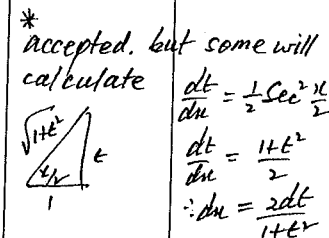 *
accepted. but some will
calculate
dt/dx = 1/2 Sec² x/2
√1+t²
t
x/2
1
dt/dx = 1+t²/2
∴ dx = 2dt/1+t²